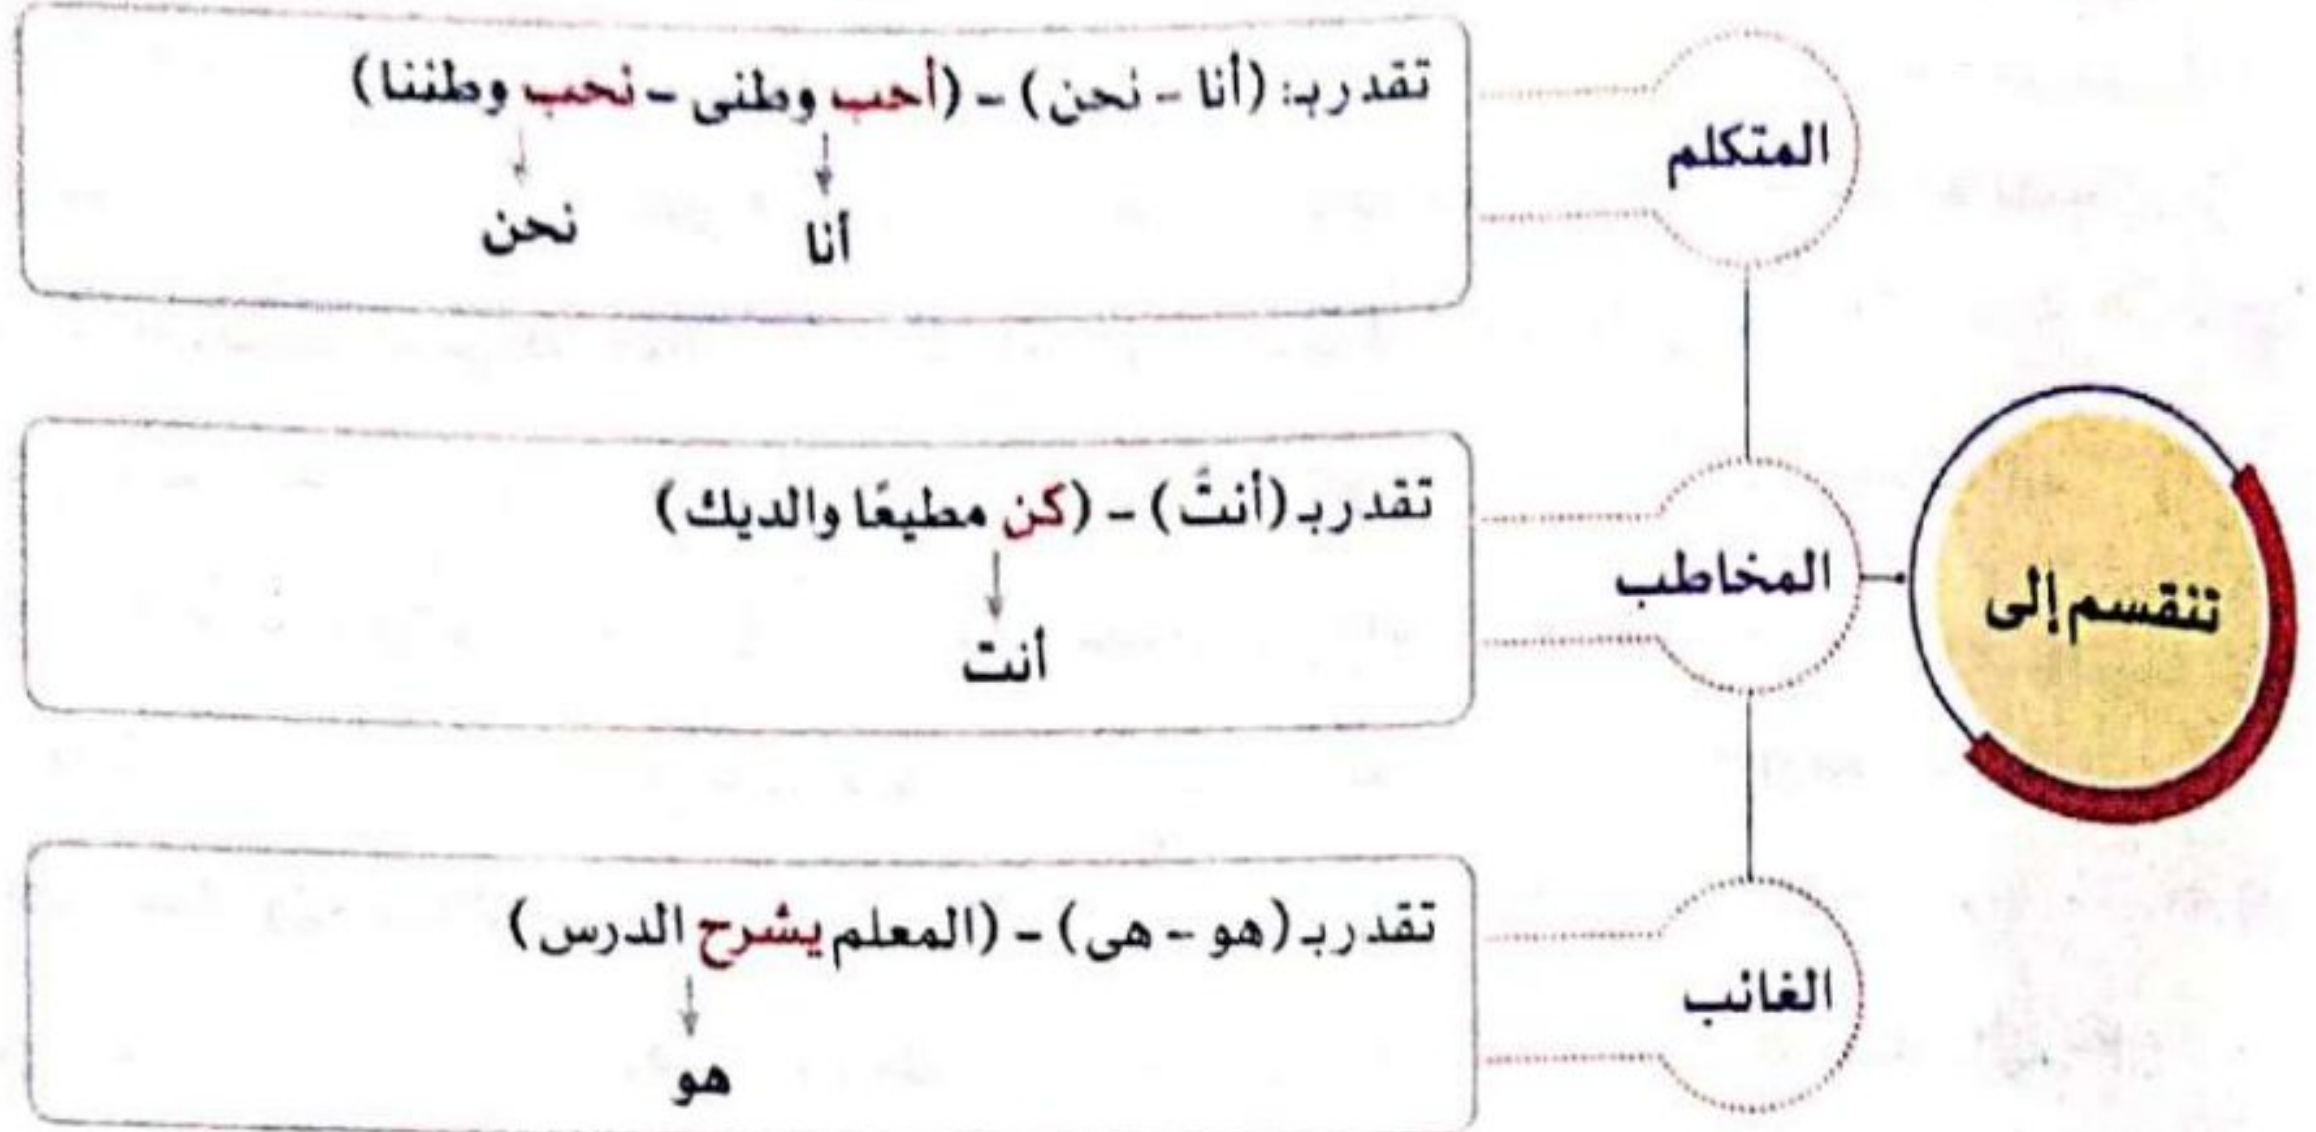 تنقسم إلى
المتكلم
تقدر بـ: (أنا - نحن) - (أحب وطنى - نحب وطننا)
أنا
نحن
المخاطب
تقدر بـ (أنتَ) - (كن مطيعًا والديك)
أنت
الغائب
تقدر بـ (هو - هى) - (المعلم يشرح الدرس)
هو